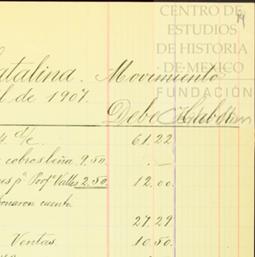 CENTRO DE
ESTUDIOS
DE HISTORIA
DE MEXICO
FUNDACIÓN
atalina. Movimiento
l. de 1907.
Debe Haber
61.22
cobros leña 9.50.
es pª Profª Valles 2.50. 12.00.
onaron cuenta
27.29
Ventas. 10.50.